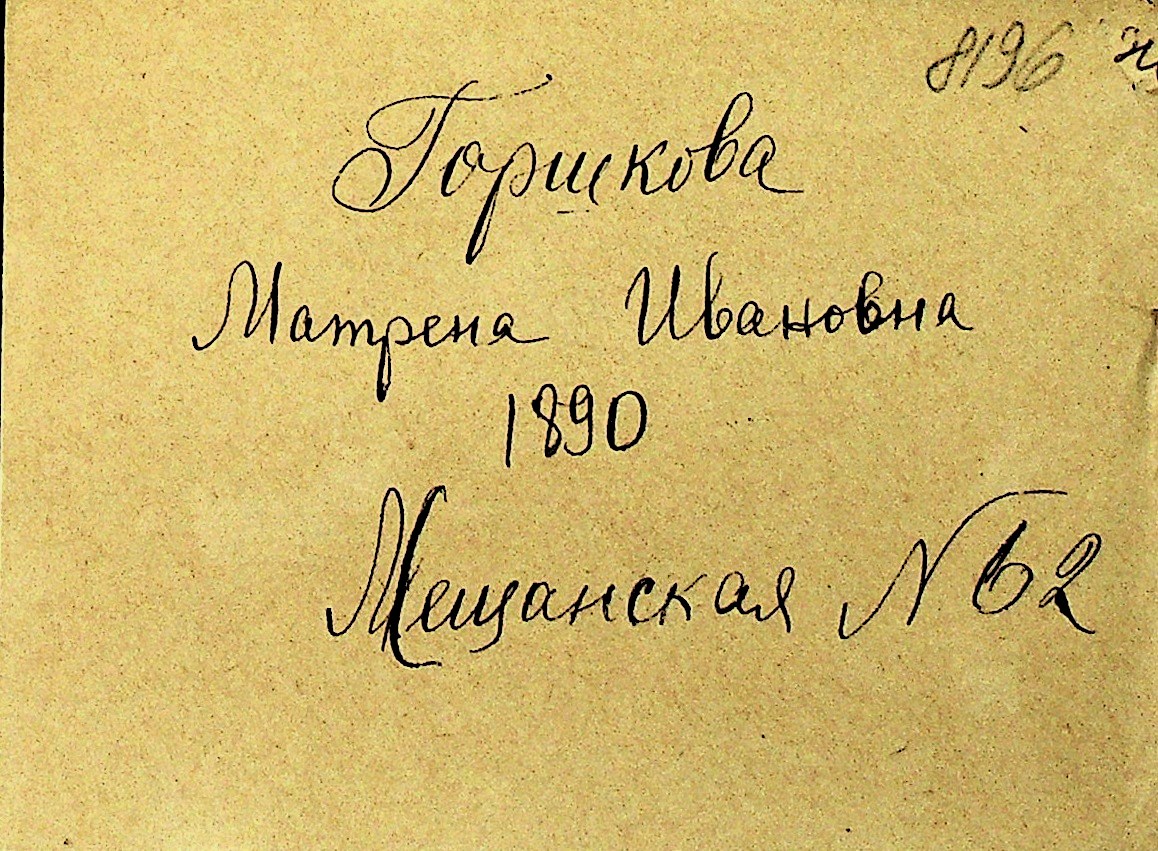 8196
Горшкова
Матрена Ивановна
1890
Мещанская № 62